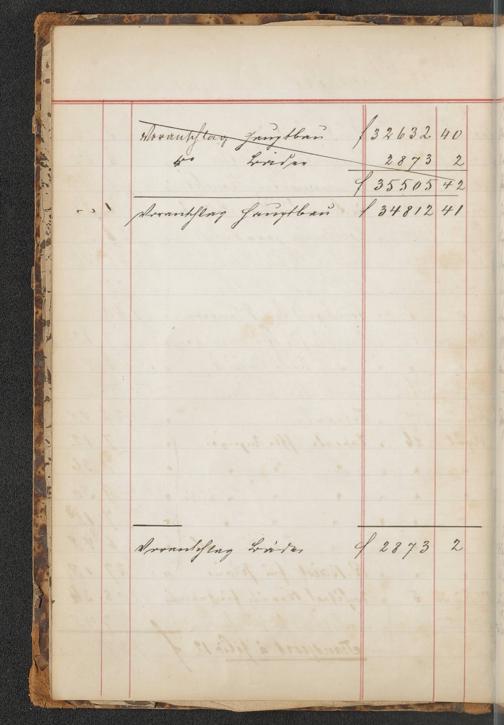 Voranschlag Hauptbau f 32632 40
do Bäder 2873 2
f 35505 42
Voranschlag Hauptbau f 34812 41
Voranschlag Bäder f 2873 2